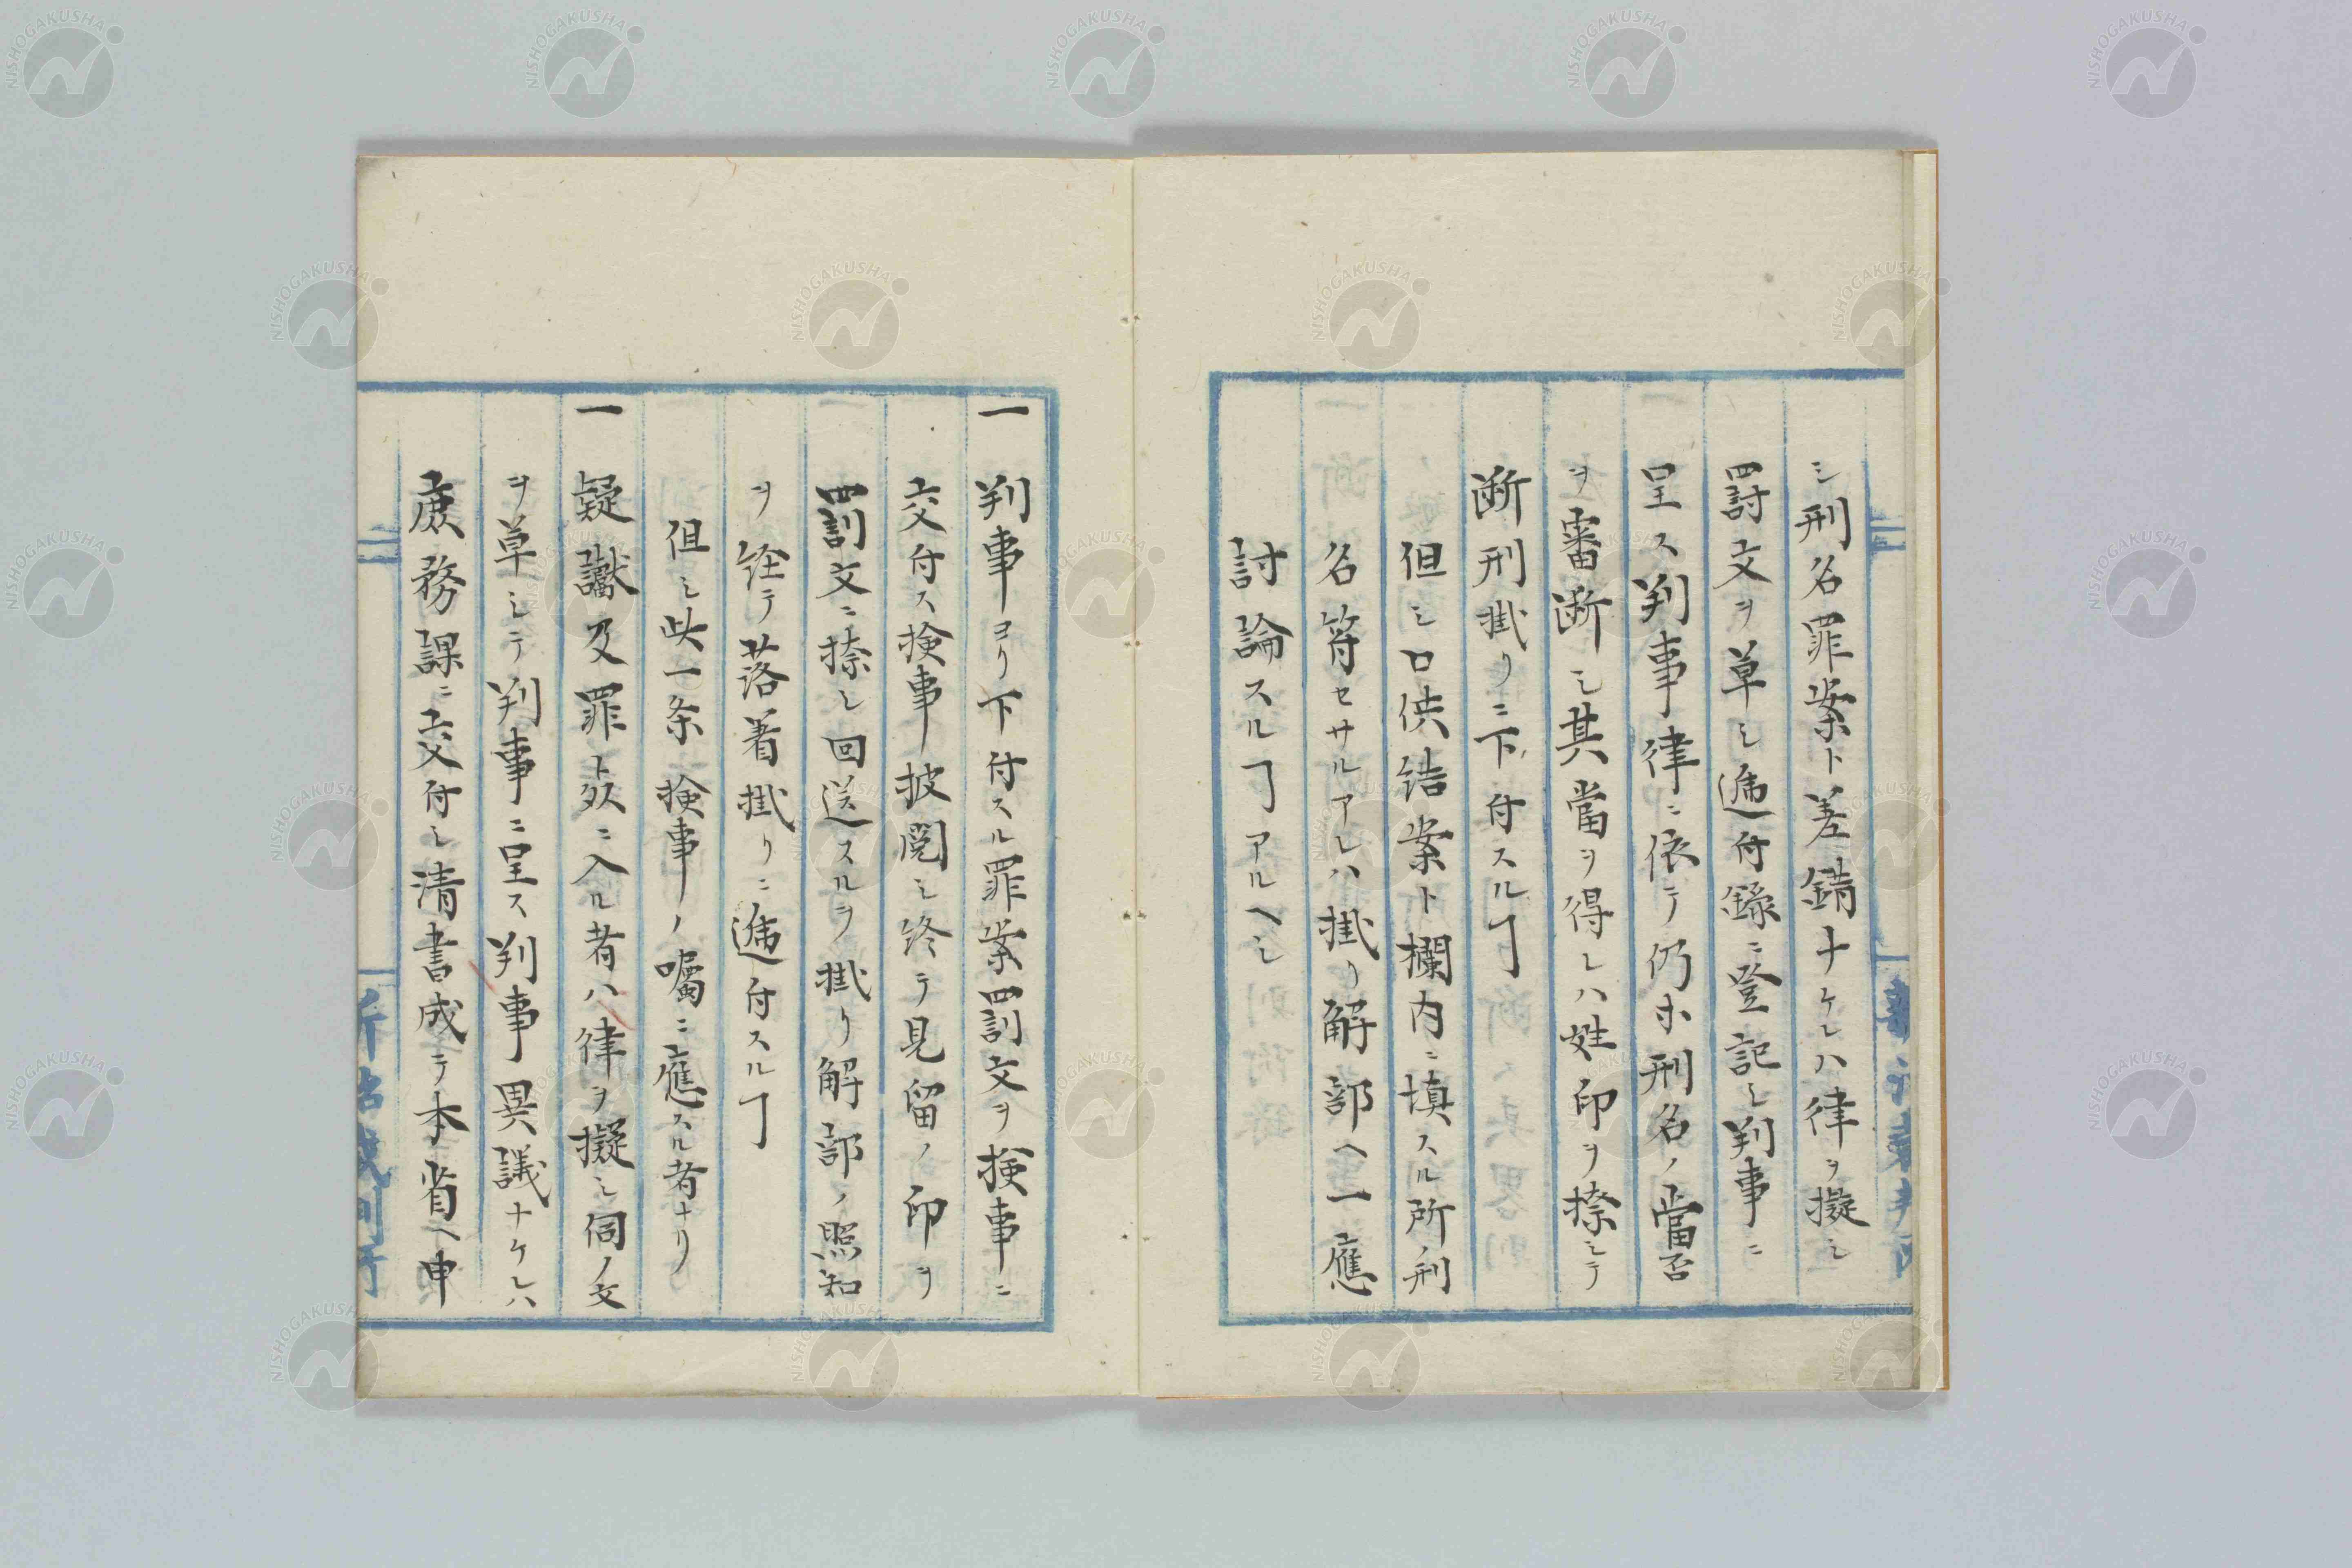 シ刑名罪案ト差錯ナケレハ律ヲ擬シ
罰文ヲ草シ逓付録ニ登記シ判事ニ
呈ス判事律ニ依テ仍ホ刑名ノ當否
ヲ審断シ其當ヲ得レハ姓印ヲ捺シテ
断刑掛リニ下付スルヿ
但シ口供結案ト欄内ニ填スル所刑
名符セサルアレハ掛リ解部ヘ一應
討論スルヿアルヘシ
一判事ヨリ下付スル罪案罰文ヲ検事ニ
交付ス検事披閲シ終テ見留ノ印ヲ
罰文ニ捺シ回送スルヲ掛リ解部ノ照知
ヲ経テ落着掛リニ逓付スルヿ
但シ此一条検事ノ囑ニ應スル者ナリ
一疑讞及罪ト欵ニ入ル者ハ律ヲ擬シ伺ノ文
ヲ草シテ判事ニ呈ス判事異議ナケレハ
庶務課ニ交付シ清書成テ本省ヘ申
NISHOGAKUSHA